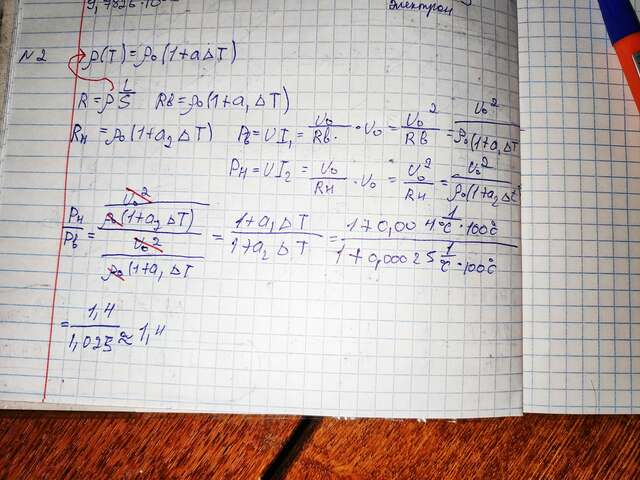 электрон
N2 ρ(T)=ρ₀(1+aΔT)
R=ρ L/S Rв=ρ₀(1+a₁ΔT)
Rн=ρ₀(1+a₂ΔT) Pв=UI₁=U₀/Rв·U₀=U₀²/Rв=U₀²/ρ₀(1+a₁ΔT
Pн=UI₂=U₀/Rн·U₀=U₀²/Rн=U₀²/ρ₀(1+a₂Δt
Pн/Pв=U₀²/ρ₀(1+a₂ΔT)/U₀²/ρ₀(1+a₁ΔT=1+a₁ΔT/1+a₂ΔT=1+0,004 1/°C·100°C/1+0,00025 1/°C·100°C
=1,4/1,025≈1,4